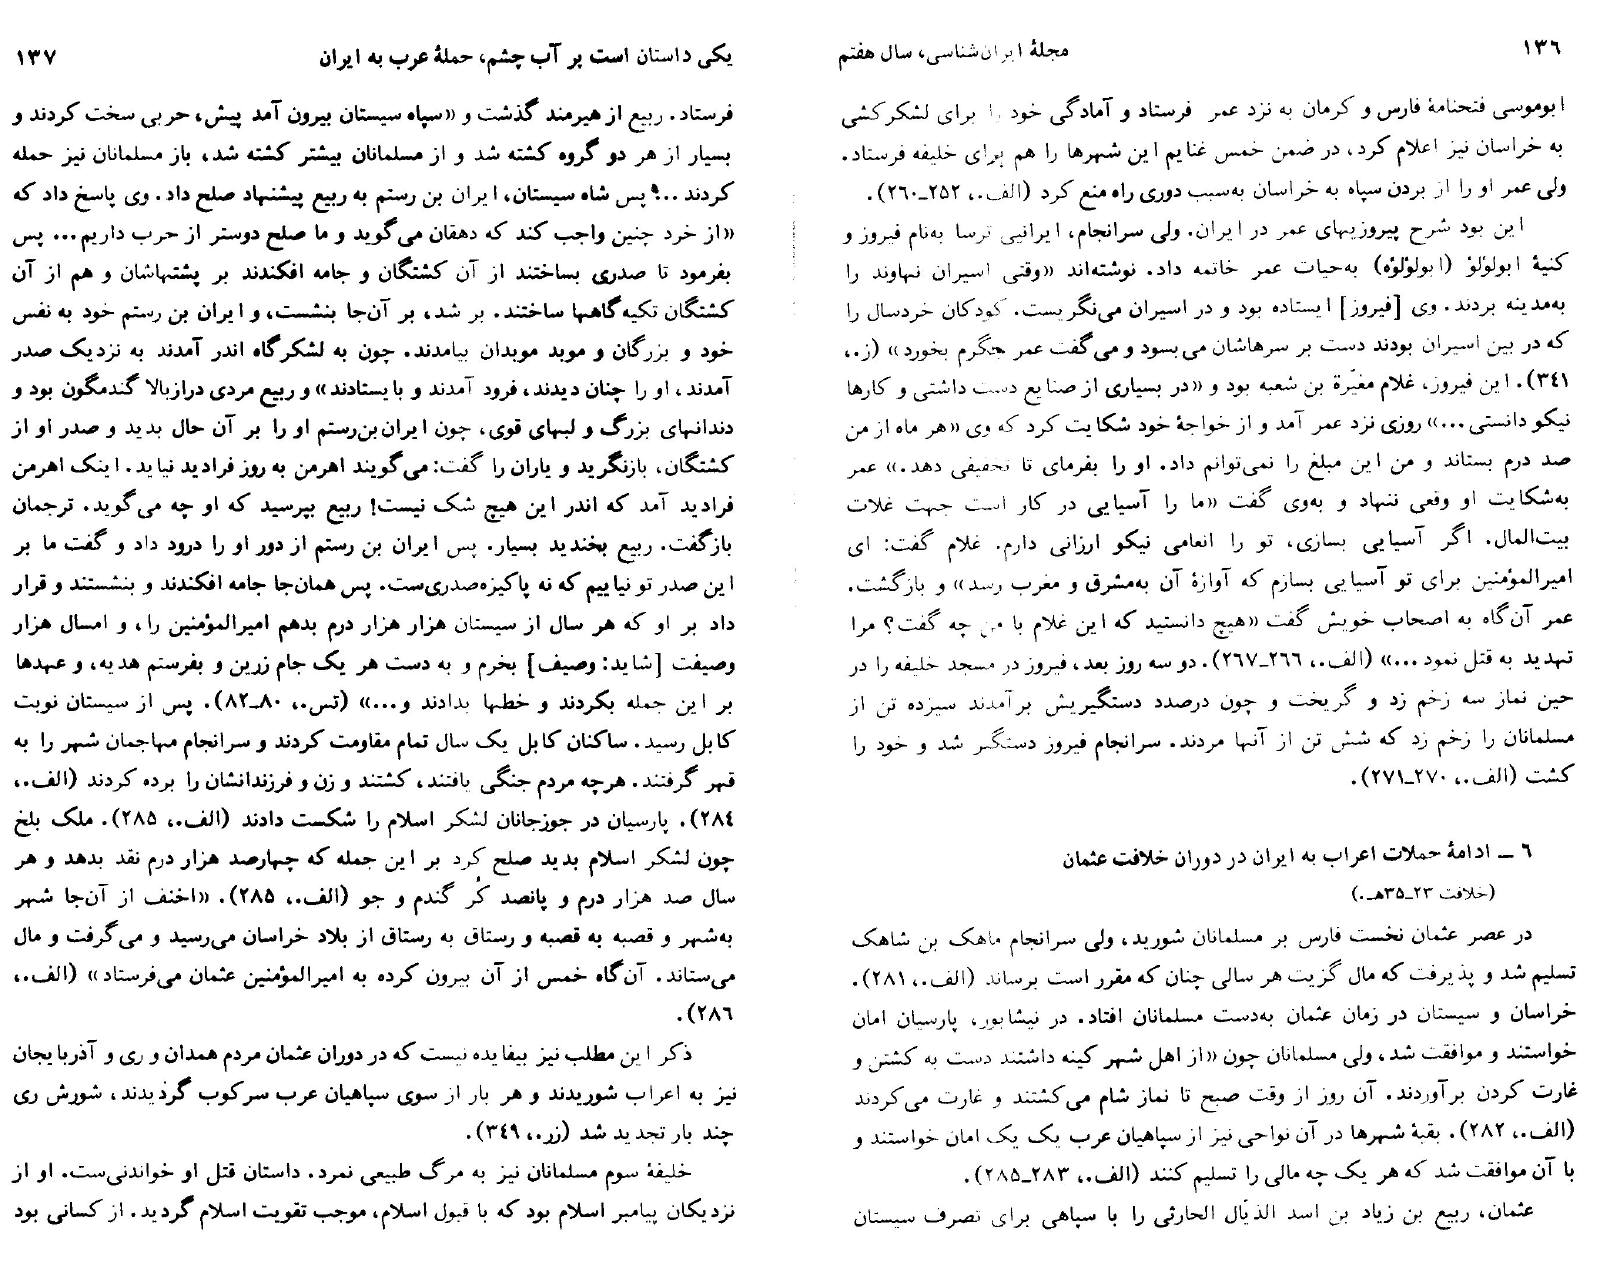 ۱۳٦
مجلهٔ ایران‌شناسی، سال هفتم
ابوموسی فتحنامهٔ فارس و کرمان به نزد عمر فرستاد و آمادگی خود را برای لشکرکشی
به خراسان نیز اعلام کرد، در ضمن خمس غنایم این شهرها را هم برای خلیفه فرستاد.
ولی عمر او را از بردن سپاه به خراسان به‌سبب دوری راه منع کرد (الف.، ۲۵۲ــ۲٦۰).
این بود شرح پیروزیهای عمر در ایران. ولی سرانجام، ایرانیی ترسا به‌نام فیروز و
کنیهٔ ابولؤلؤ (ابولؤلؤه) به‌حیات عمر خاتمه داد. نوشته‌اند «وقتی اسیران نهاوند را
به‌مدینه بردند. وی [فیروز] ایستاده بود و در اسیران می‌نگریست. کودکان خردسال را
که در بین اسیران بودند دست بر سرهاشان می‌بسود و می‌گفت عمر جگرم بخورد» (ز.،
۳٤۱). این فیروز، غلام مغیّرة بن شعبه بود و «در بسیاری از صنایع دست داشتی و کارها
نیکو دانستی...» روزی نزد عمر آمد و از خواجهٔ خود شکایت کرد که وی «هر ماه از من
صد درم بستاند و من این مبلغ را نمی‌توانم داد. او را بفرمای تا تخفیفی دهد.» عمر
به‌شکایت او وقعی ننهاد و به‌وی گفت «ما را آسیایی در کار است جهت غلات
بیت‌المال. اگر آسیایی بسازی، تو را انعامی نیکو ارزانی دارم. غلام گفت: ای
امیرالمؤمنین برای تو آسیایی بسازم که آوازهٔ آن به‌مشرق و مغرب رسد» و بازگشت.
عمر آن‌گاه به اصحاب خویش گفت «هیچ دانستید که این غلام با من چه گفت؟ مرا
تهدید به قتل نمود ...» (الف.، ۲٦٦ــ۲٦۷). دو سه روز بعد، فیروز در مسجد خلیفه را در
حین نماز سه زخم زد و گریخت و چون درصدد دستگیریش برآمدند سیزده تن از
مسلمانان را زخم زد که شش تن از آنها مردند. سرانجام فیروز دستگیر شد و خود را
کشت (الف.، ۲۷۰ــ۲۷۱).
٦ ــ ادامهٔ حملات اعراب به ایران در دوران خلافت عثمان
(خلافت ۲۳ــ۳۵هـ.)
در عصر عثمان نخست فارس بر مسلمانان شورید، ولی سرانجام ماهک بن شاهک
تسلیم شد و پذیرفت که مال گزیت هر سالی چنان که مقرر است برساند (الف.، ۲۸۱).
خراسان و سیستان در زمان عثمان به‌دست مسلمانان افتاد. در نیشابور، پارسیان امان
خواستند و موافقت شد، ولی مسلمانان چون «از اهل شهر کینه داشتند دست به کشتن و
غارت کردن برآوردند. آن روز از وقت صبح تا نماز شام می‌کشتند و غارت می‌کردند
(الف.، ۲۸۲). بقیهٔ شهرها در آن نواحی نیز از سپاهیان عرب یک یک امان خواستند و
با آن موافقت شد که هر یک چه مالی را تسلیم کنند (الف.، ۲۸۳ــ۲۸۵).
عثمان، ربیع بن زیاد بن اسد الذیّال الحارثی را با سپاهی برای تصرف سیستان
یکی داستان است بر آب چشم، حملهٔ عرب به ایران
۱۳۷
فرستاد. ربیع از هیرمند گذشت و «سپاه سیستان بیرون آمد پیش، حربی سخت کردند و
بسیار از هر دو گروه کشته شد و از مسلمانان بیشتر کشته شد، باز مسلمانان نیز حمله
کردند ...» پس شاه سیستان، ایران بن رستم به ربیع پیشنهاد صلح داد. وی پاسخ داد که
«از خرد چنین واجب کند که دهقان می‌گوید و ما صلح دوستر از حرب داریم... پس
بفرمود تا صدری بساختند از آن کشتگان و جامه افکندند بر پشتهاشان و هم از آن
کشتگان تکیه‌گاهها ساختند. بر شد، بر آن‌جا بنشست، و ایران بن رستم خود به نفس
خود و بزرگان و موبد موبدان بیامدند. چون به لشکرگاه اندر آمدند به نزدیک صدر
آمدند، او را چنان دیدند، فرود آمدند و بایستادند» و ربیع مردی درازبالا گندمگون بود و
دندانهای بزرگ و لبهای قوی، چون ایران‌بن‌رستم او را بر آن حال بدید و صدر او از
کشتگان، بازنگرید و یاران را گفت: می‌گویند اهرمن به روز فرادید نیاید. اینک اهرمن
فرادید آمد که اندر این هیچ شک نیست! ربیع بپرسید که او چه می‌گوید. ترجمان
بازگفت. ربیع بخندید بسیار. پس ایران بن رستم از دور او را درود داد و گفت ما بر
این صدر تو نیاییم که نه پاکیزه‌صدری‌ست. پس همان‌جا جامه افکندند و بنشستند و قرار
داد بر او که هر سال از سیستان هزار هزار درم بدهم امیرالمؤمنین را، و امسال هزار
وصیفت [شاید: وصیف] بخرم و به دست هر یک جام زرین و بفرستم هدیه، و عهدها
بر این جمله بکردند و خطها بدادند و...» (تس.، ۸۰ــ۸۲). پس از سیستان نوبت
کابل رسید. ساکنان کابل یک سال تمام مقاومت کردند و سرانجام مهاجمان شهر را به
قهر گرفتند. هرچه مردم جنگی یافتند، کشتند و زن و فرزندانشان را برده کردند (الف.،
۲۸٤). پارسیان در جوزجانان لشکر اسلام را شکست دادند (الف.، ۲۸۵). ملک بلخ
چون لشکر اسلام بدید صلح کرد بر این جمله که چهارصد هزار درم نقد بدهد و هر
سال صد هزار درم و پانصد کُر گندم و جو (الف.، ۲۸۵). «احنف از آن‌جا شهر
به‌شهر و قصبه به قصبه و رستاق به رستاق از بلاد خراسان می‌رسید و می‌گرفت و مال
می‌ستاند. آن‌گاه خمس از آن بیرون کرده به امیرالمؤمنین عثمان می‌فرستاد» (الف.،
۲۸٦).
ذکر این مطلب نیز بیفایده نیست که در دوران عثمان مردم همدان و ری و آذربایجان
نیز به اعراب شوریدند و هر بار از سوی سپاهیان عرب سرکوب گردیدند، شورش ری
چند بار تجدید شد (زر.، ۳٤۹).
خلیفهٔ سوم مسلمانان نیز به مرگ طبیعی نمرد. داستان قتل او خواندنی‌ست. او از
نزدیکان پیامبر اسلام بود که با قبول اسلام، موجب تقویت اسلام گردید. از کسانی بود